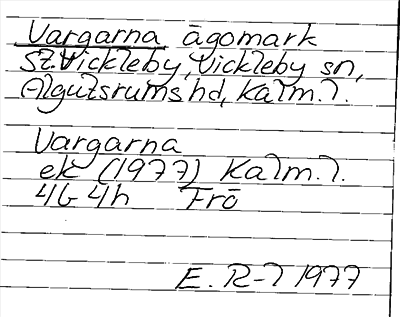 Vargarna ägomark
St. Vickleby, Vickleby sn,
Algutsrums hd, Kalm. l.
Vargarna
ek (1977) Kalm. l.
4G 4h Frö
E. R-l 1977